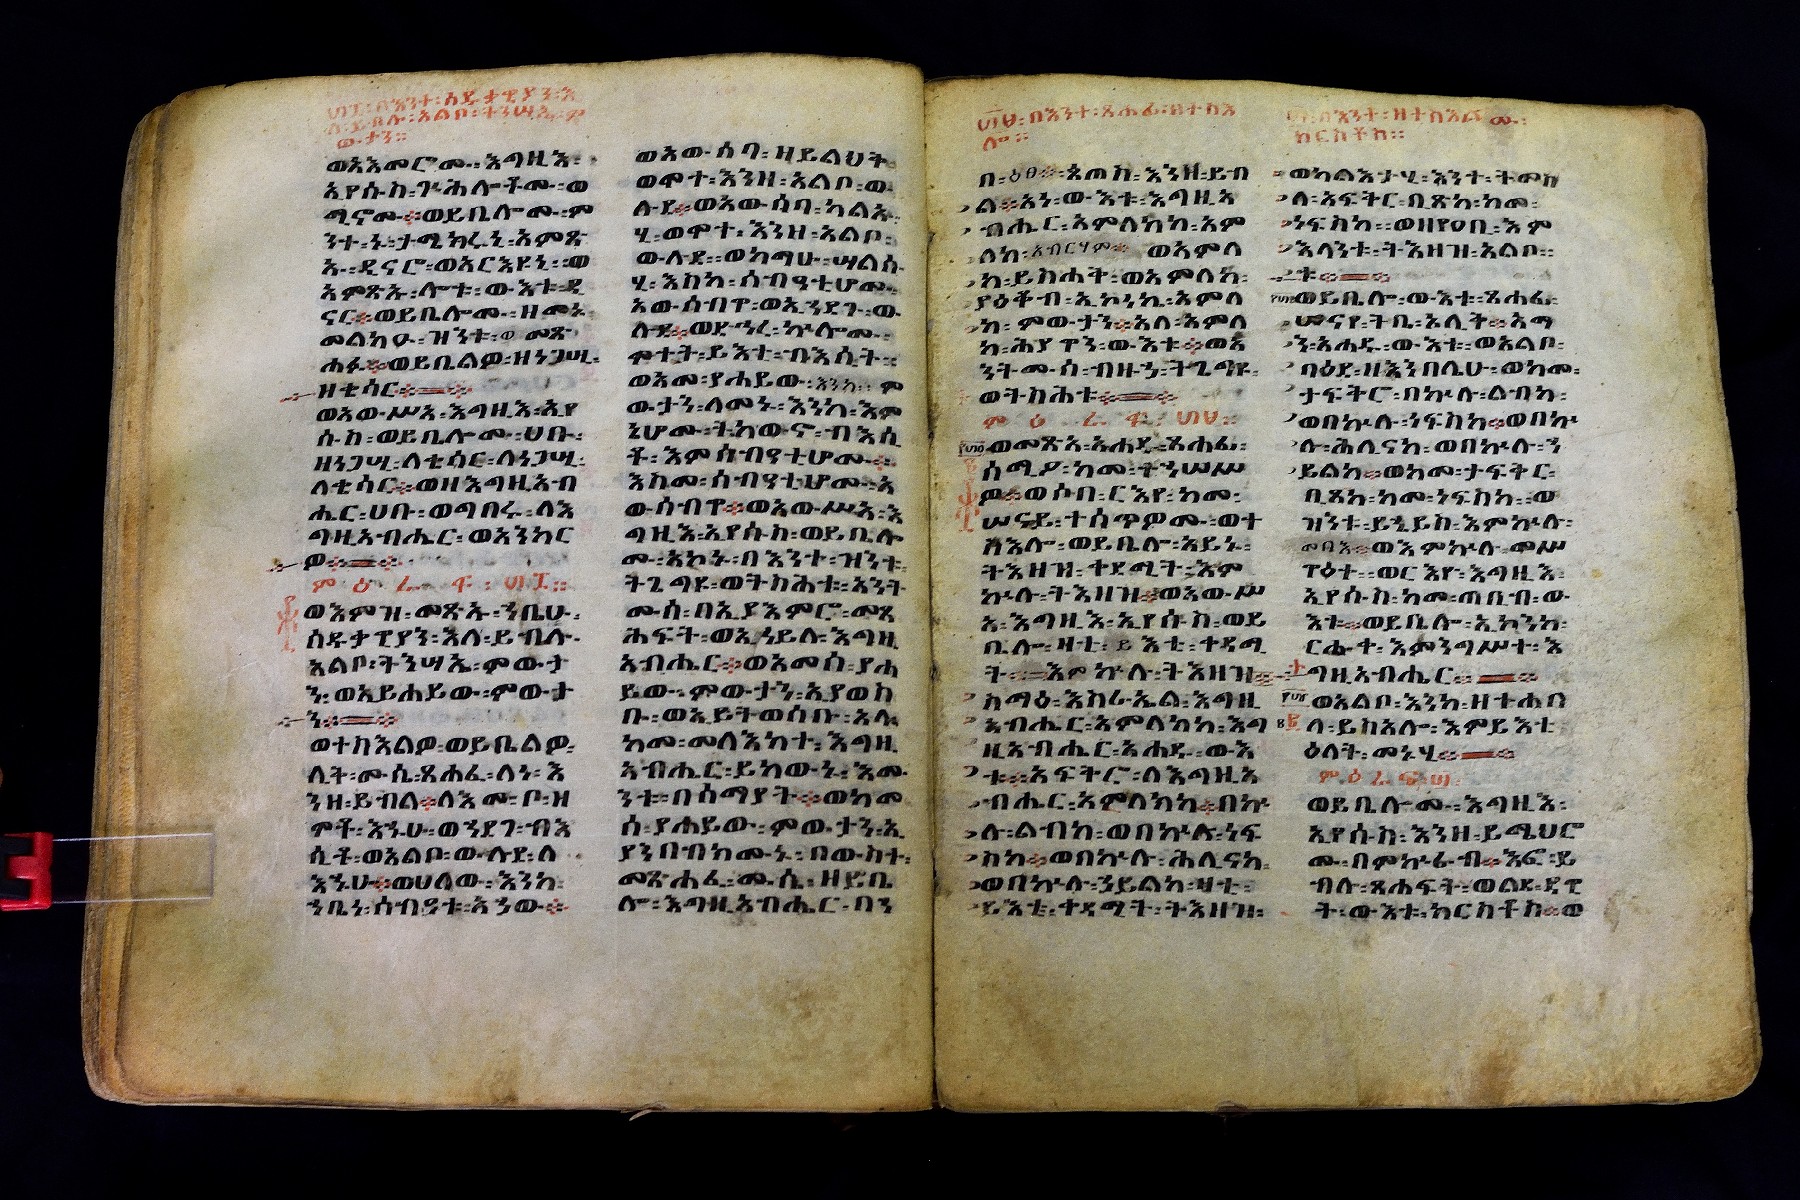 በእንተ፡ሰዱቃዊያን፡እ
ለ፡ይብሉ፡አልቦ፡ትንሣኤ፡ም
ውታን።
ወአእመሮሙ፡እግዚእ፡
ኢየሱስ፡ጒሕሎቶሙ፡ወ
ሚኖሙ፡ወይቤሎሙ፡ም
ንተ፡ኑ፡ታሜክሩኒ፡አምጽ
ኡ፡ዲናሮ፡ወአርእዩኒ፡ወ
አምጽኡ፡ሎቱ፡ውእተ፡ዲ
ናር፡ወይቤሎሙ፡ዘመኑ፡
መልክዑ፡ዝንቱ፡ወመጽ
ሐፉ፡ወይቤልዎ፡ዘነጋሢ፡
ዘቄሳር።
ወአውሥአ፡እግዚእ፡ኢየ
ሱስ፡ወይቤሎሙ፡ሀቡ፡
ዘነጋሢ፡ለቄሳር፡ለነጋሢ፡
ለቄሳር፡ወዘእግዚአብ
ሔር፡ሀቡ፡ወግበሩ፡ለእ
ግዚአብሔር፡ወአንከር
ዎ።
ምዕራፍ፡
ወእምዝ፡መጽኡ፡ኀቤሁ፡
ሰዱቃዊያን፡እለ፡ይብሉ፡
አልቦ፡ትንሣኤ፡ምውታ
ን፡ወኢይሐይው፡ምውታ
ን።
ወተስእልዎ፡ወይቤልዎ፡
ሊቅ፡ሙሴ፡ጸሐፈ፡ለነ፡እ
ንዘ፡ይብል፡ለእመ፡ቦ፡ዘ
ሞቶ፡እኁሁ፡ወኀደገ፡ብእ
ሲቶ፡ወአልቦ፡ውሉደ፡ለ
እኁሁ፡ወሀለው፡እንከ፡
ኀቤነ፡ሰብዐቱ፡አኃው፡
ወአውሰባ፡ዘይልህቅ፡
ወሞተ፡እንዘ፡አልቦ፡ው
ሉደ፡ወአውሰባ፡ካልኡ፡
ሂ፡ወሞተ፡እንዘ፡አልቦ፡
ውሉደ፡ወከማሁ፡ሣልሱ፡
ሂ፡እስከ፡ሰብዓቲሆሙ፡
አውሰብዋ፡ወኢኀደገ፡ው
ሉደ፡ወድኅረ፡ኵሎሙ፡
ሞተት፡ይእቲ፡ብእሲት፡
ወአመ፡ያሐይው፡እንከ፡ም
ውታን፡ለመኑ፡እንከ፡እም
ኔሆሙ፡ትከውኖ፡ብእሲ
ቶ፡እምሰብዓቲሆሙ፡
እስመ፡ሰብዓቲሆሙ፡አ
ውሰብዋ፡ወአውሥአ፡እ
ግዚእ፡ኢየሱስ፡ወይቤሎ
ሙ፡አኮኑ፡በእንተ፡ዝንቱ፡
ትጌግዩ፡ወትስሕቱ፡አንት
ሙሰ፡በኢያእምሮ፡መጻ
ሕፍት፡ወኢኀይለ፡እግዚ
አብሔር፡ወአመሰ፡ያሐ
ይው፡ምውታን፡ኢያወስ
ቡ፡ወኢይትወሰቡ፡አላ
ከመ፡መላእክተ፡እግዚ
አብሔር፡ይከውኑ፡እሙ
ንቱ፡በሰማያት፡ወከመ
ሰ፡ያሐይው፡ምውታን፡ኢ
ያንበብክሙኑ፡በውስተ፡
መጽሐፈ፡ሙሴ፡ዘይቤ
ሎ፡እግዚአብሔር፡በኀ
በእንተ፡ጸሐፊ፡ዘተስእ
ሎ።
በ፡ዕፀ፡ጳጦስ፡እንዘ፡ይብ
ል፡አነ፡ውእቱ፡እግዚአ
ብሔር፡አምላክከ፡አም
ላከ፡አብርሃም፡ወአምላ
ከ፡ይስሐቅ፡ወአምላከ፡
ያዕቆብ፡ኢኮነኬ፡አምላ
ከ፡ምውታን፡አላ፡አምላ
ከ፡ሕያዋን፡ውእቱ፡ወአ
ንትሙሰ፡ብዙኃ፡ትጌግዩ፡
ወትስሕቱ።
ምዕራፍ፡
ወመጽአ፡አሐዱ፡ጸሐፊ፡
ሰሚዖ፡ከመ፡ተኀሠሥ
ዎ፡ወሶበ፡ርእየ፡ከመ፡
ሠናይ፡ተሰጥዎሙ፡ወተ
ስእሎ፡ወይቤሎ፡አይኑ፡
ትእዘዝ፡ቀዳሚት፡እም
ኵሉ፡ትእዘዝ፡ወአውሥ
አ፡እግዚእ፡ኢየሱስ፡ወይ
ቤሎ፡ዛቲ፡ይእቲ፡ቀዳሚ
ት፡እምኵሉ፡ትእዘዝ፡
ስማዕ፡እስራኤል፡እግዚ
አብሔር፡አምላክከ፡እግ
ዚአብሔር፡አሐዱ፡ውእ
ቱ፡አፍቅሮ፡ለእግዚአ
ብሔር፡አምላክከ፡በኵ
ሉ፡ልብከ፡ወበኵሉ፡ነፍ
ስከ፡ወበኵሉ፡ሕሊናከ፡
ወበኵሉ፡ኀይልከ፡ዛቲ፡
ይእቲ፡ቀዳሚት፡ትእዘዝ፡
በእንተ፡ዘተስእሎሙ፡
ክርስቶስ።
ወካልእታሂ፡እንተ፡ትመስ
ላ፡አፍቅር፡ቢጽከ፡ከመ፡
ነፍስከ፡ወዘየዐቢ፡እም
እላንቱ፡ትእዘዝ፡አልቦ፡
ቱ።
ወይቤሎ፡ውእቱ፡ጸሐፊ፡
ሠናየ፡ትቤ፡ሊቅ፡አማ
ን፡አሐዱ፡ውእቱ፡ወአልቦ፡
ባዕደ፡ዘእንበሌሁ፡ወከመ፡
ታፍቅሮ፡በኵሉ፡ልብከ፡
ወበኵሉ፡ነፍስከ፡ወበኵ
ሉ፡ሕሊናከ፡ወበኵሉ፡ኀ
ይልከ፡ወከመ፡ታፍቅር፡
ቢጸከ፡ከመ፡ነፍስከ፡ወ
ዝንቱ፡ይኄይስ፡እምኵሉ፡
መባእ፡ወእምኵሉ፡መሥ
ዋዕት፡ወርእዮ፡እግዚእ፡
ኢየሱስ፡ከመ፡ጠቢብ፡ው
እቱ፡ወይቤሎ፡ኢኮንከ፡
ርሑቀ፡እምንግሥተ፡እ
ግዚአብሔር።
ወአልቦ፡እንከ፡ዘተሐበ
ለ፡ይስአሎ፡እምይእቲ፡
ዕለት፡መኑሂ።
ምዕራፍ፡
ወይቤሎሙ፡እግዚእ፡
ኢየሱስ፡እንዘ፡ይሜህሮ
ሙ፡በምኵራብ፡እፎ፡ይ
ብሉ፡ጸሐፍት፡ወልደ፡ዳዊ
ት፡ውእቱ፡ክርስቶስ፡ወ